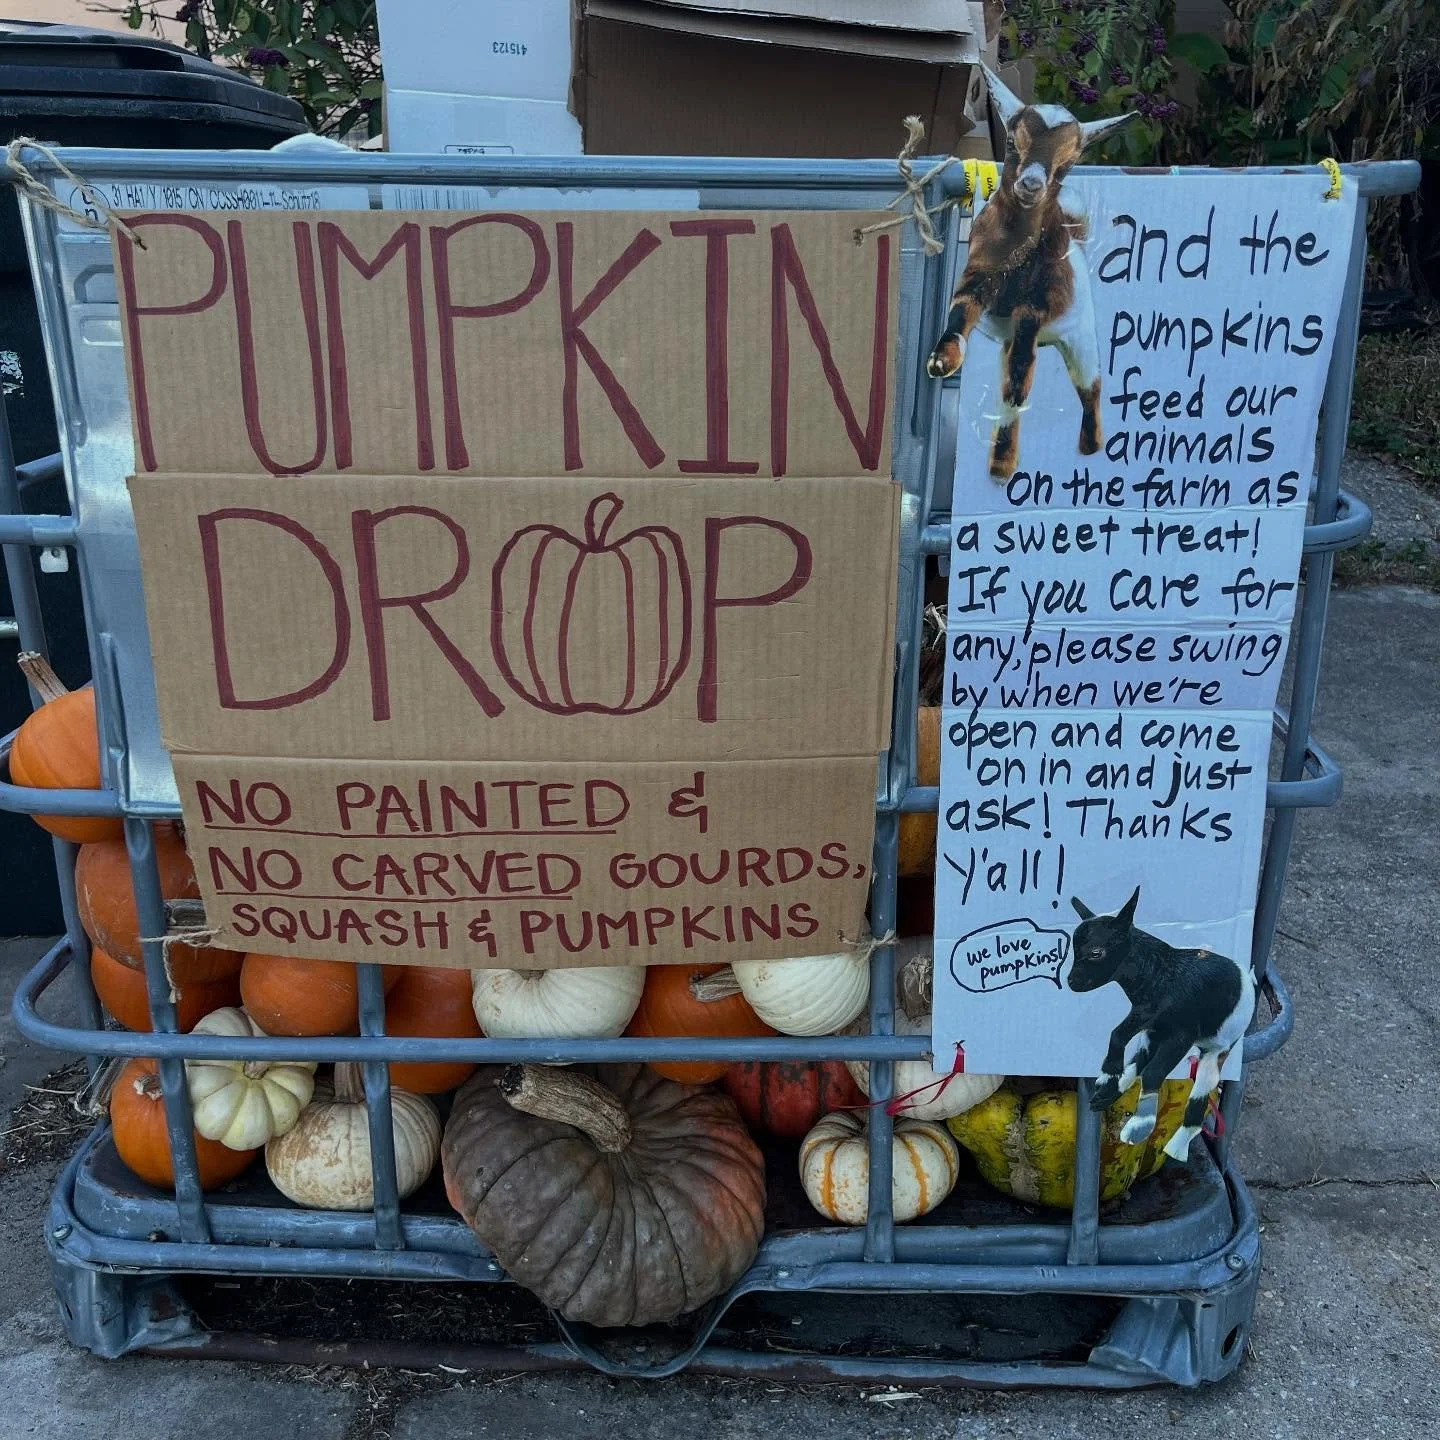 415123
31 HA1/Y/1015/CN/CCSSH0011-11-Schütz18
PUMPKIN
DROP
NO PAINTED &
NO CARVED GOURDS,
SQUASH & PUMPKINS
and the
pumpkins
feed our
animals
on the farm as
a sweet treat!
If you care for
any, please swing
by when we're
open and come
on in and just
ask! Thanks
Y'all!
we love
pumpkins!